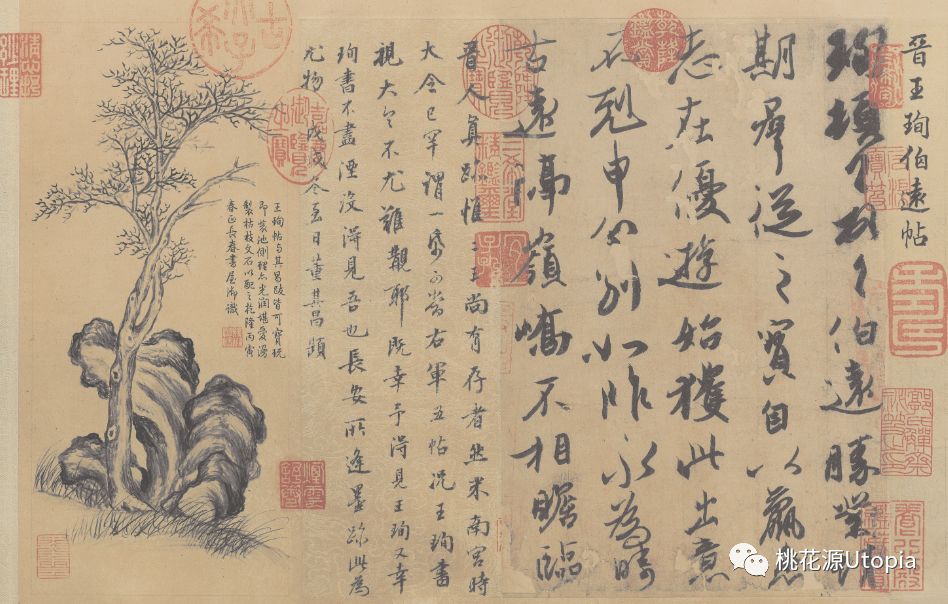 晉王珣伯遠帖
珣頓首頓首伯遠勝業情
期群從之寶自以羸患
志在優遊始獲此出意
不剋申分別如昨永為疇
古遠隔嶺嶠不相瞻臨
晉人真跡惟二王尚有存者然米南宮時
大令已罕謂一紙可當右軍五帖況王珣書
視大令不尤難覯耶既幸予得見王珣又幸
珣書不盡湮沒得見吾也長安所逢墨跡此為
尤物 戊戌冬至日董其昌題
王珣帖与其昌跋皆可寶玩
即裝池側理亦光潤堪愛漫
製枯枝文石以配之乾隆丙寅
春正長春書屋御識
桃花源Utopia